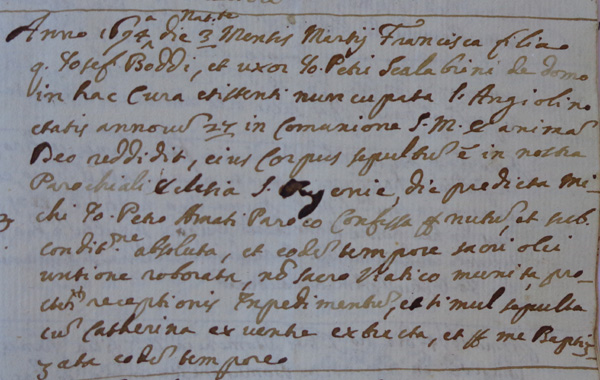 Anno 1694 a Nat.te die 3 Mensis Martij Francisca filia
q. Josef Boddi, et uxor Jo. Petri Scalabrini de domo
in hac Cura existenti nuncupata S. Angiolino
etatis annorũ 27 in Comunione S. M. E. animã
Deo reddidit, eius Corpus sepultũ ẽ in nostra
Parochiali Eclesia S. die predicta mi-
chi Jo. Petro Amati Paroco Confessa nutũ, et sub
condit.ne absoluta, et eodẽ tempore sacri olei
untione roborata, nõ sacro Viatico munita pro-
receptionis Inpedimentũ, et simul sepulta
cũ Catherina ex ventre extrecta, et me Bapti-
zata eodẽ tempore